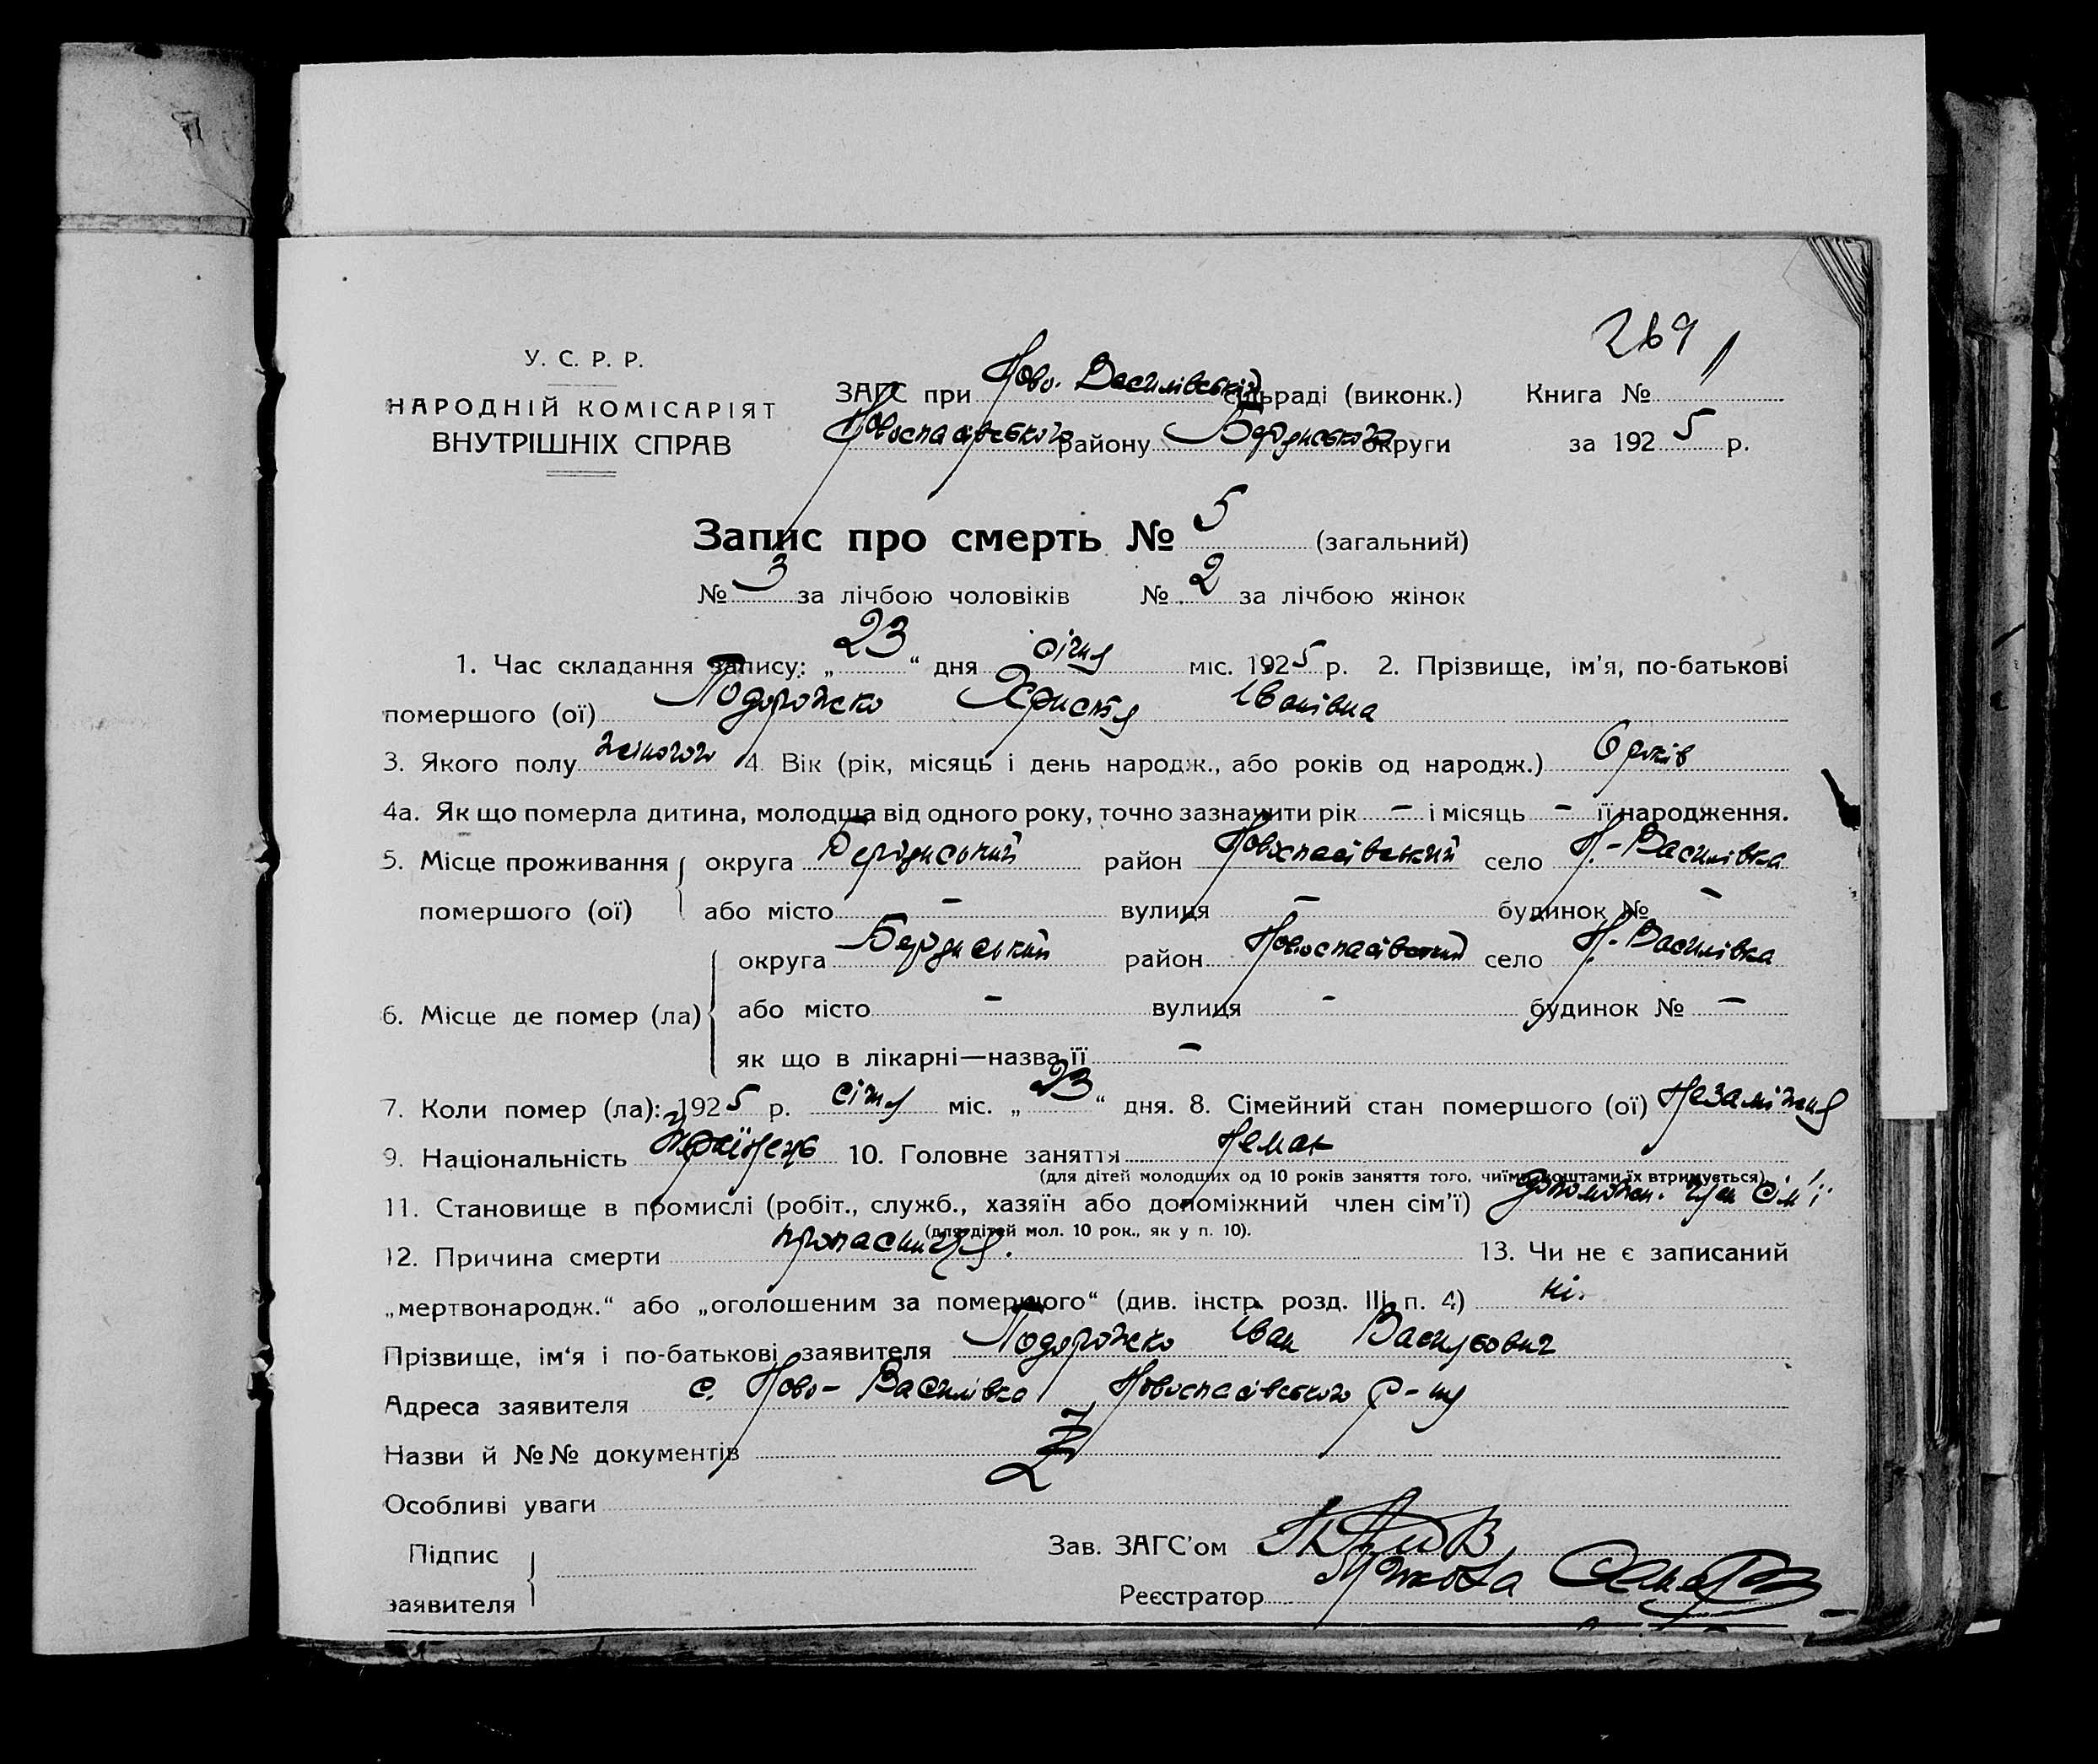 269
У. С. Р. Р.
НАРОДНІЙ КОМІСАРІЯТ
ВНУТРІШНІХ СПРАВ
ЗАГС при Ново-Василівській сільраді (виконк.) Книга №
Новоспасівського району Бердянської округи за 1925 р.
Запис про смерть № 5 (загальний)
№ 3 за лічбою чоловіків № 2 за лічбою жінок
1. Час складання запису: „23“ дня січня міс. 1925 р. 2. Прізвище, ім'я, по-батькові
помершого (ої) Подорожко Христя Іванівна
3. Якого полу жіночого 4. Вік (рік, місяць і день народж., або років од народж.) 6 років
4а. Як що померла дитина, молодша від одного року, точно зазначити рік – і місяць – її народження.
5. Місце проживання округа Бердянський район Новоспасівський село Н-Василівка
помершого (ої) або місто – вулиця – будинок № –
округа Бердянський район Новоспасівский село Н. Василівка
6. Місце де помер (ла) або місто – вулиця – будинок № –
як що в лікарні—назва її –
7. Коли помер (ла): 1925 р. січня міс. „23“ дня. 8. Сімейний стан помершого (ої) Незаміжня
9. Національність 10. Головне заняття Немає
(для дітей молодших од 10 років заняття того, чиїми коштами їх втримується)
11. Становище в промислі (робіт., служб., хазяїн або допоміжний член сім'ї) допоможн. член сім'ї
(для дітей мол. 10 рок., як у п. 10).
12. Причина смерти пропасниця. 13. Чи не є записаний
„мертвонародж.“ або „оголошеним за помершого“ (див. інстр. розд. III п. 4) ні.
Прізвище, ім'я і по-батькові заявителя Подорожко Іван Васильович
Адреса заявителя с. Ново-Василівка Новоспасівського р-ну
Назви й №№ документів
Особливі уваги
Підпис Зав. ЗАГС'ом
заявителя Реєстратор